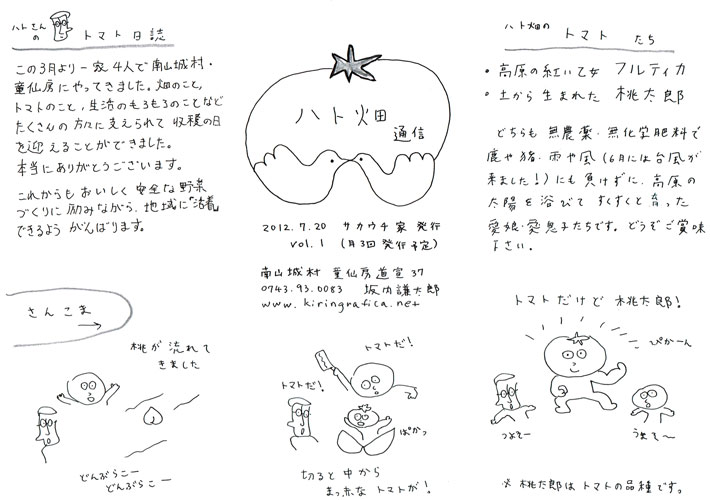 ハトさん
の トマト日誌
この3月より一家4人で南山城村・
童仙房にやってきました。畑のこと、
トマトのこと、生活のもろもろのことなど
たくさんの方々に支えられて収穫の日
を迎えることができました。
本当にありがとうございます。
これからもおいしく安全な野菜
づくりに励みながら、地域に「活着」
できるようがんばります。
ハト畑
通信
2012.7.20 サカウチ家 発行
vol.1 (月3回発行予定)
南山城村 童仙房道宣37
0743.93.0083 坂内謙太郎
www.kiringrafica.net
ハト畑の トマト たち
・高原の紅い乙女 フルティカ
・土から生まれた 桃太郎
どちらも 無農薬・無化学肥料で
鹿や猪・雨や風(6月には台風が
来ました!)にも負けずに、高原の
太陽を浴びて すくすくと育った
愛娘・愛息子たちです。どうぞご賞味
下さい。
さんこま
→
桃が流れて
きました
どんぶらこー
どんぶらこー
トマトだ!
トマトだ!
ぱかっ
切ると中から
まっ赤なトマトが!
トマトだけど 桃太郎!
ぴかーん
つよそー
うまそ〜
※桃太郎はトマトの品種です。